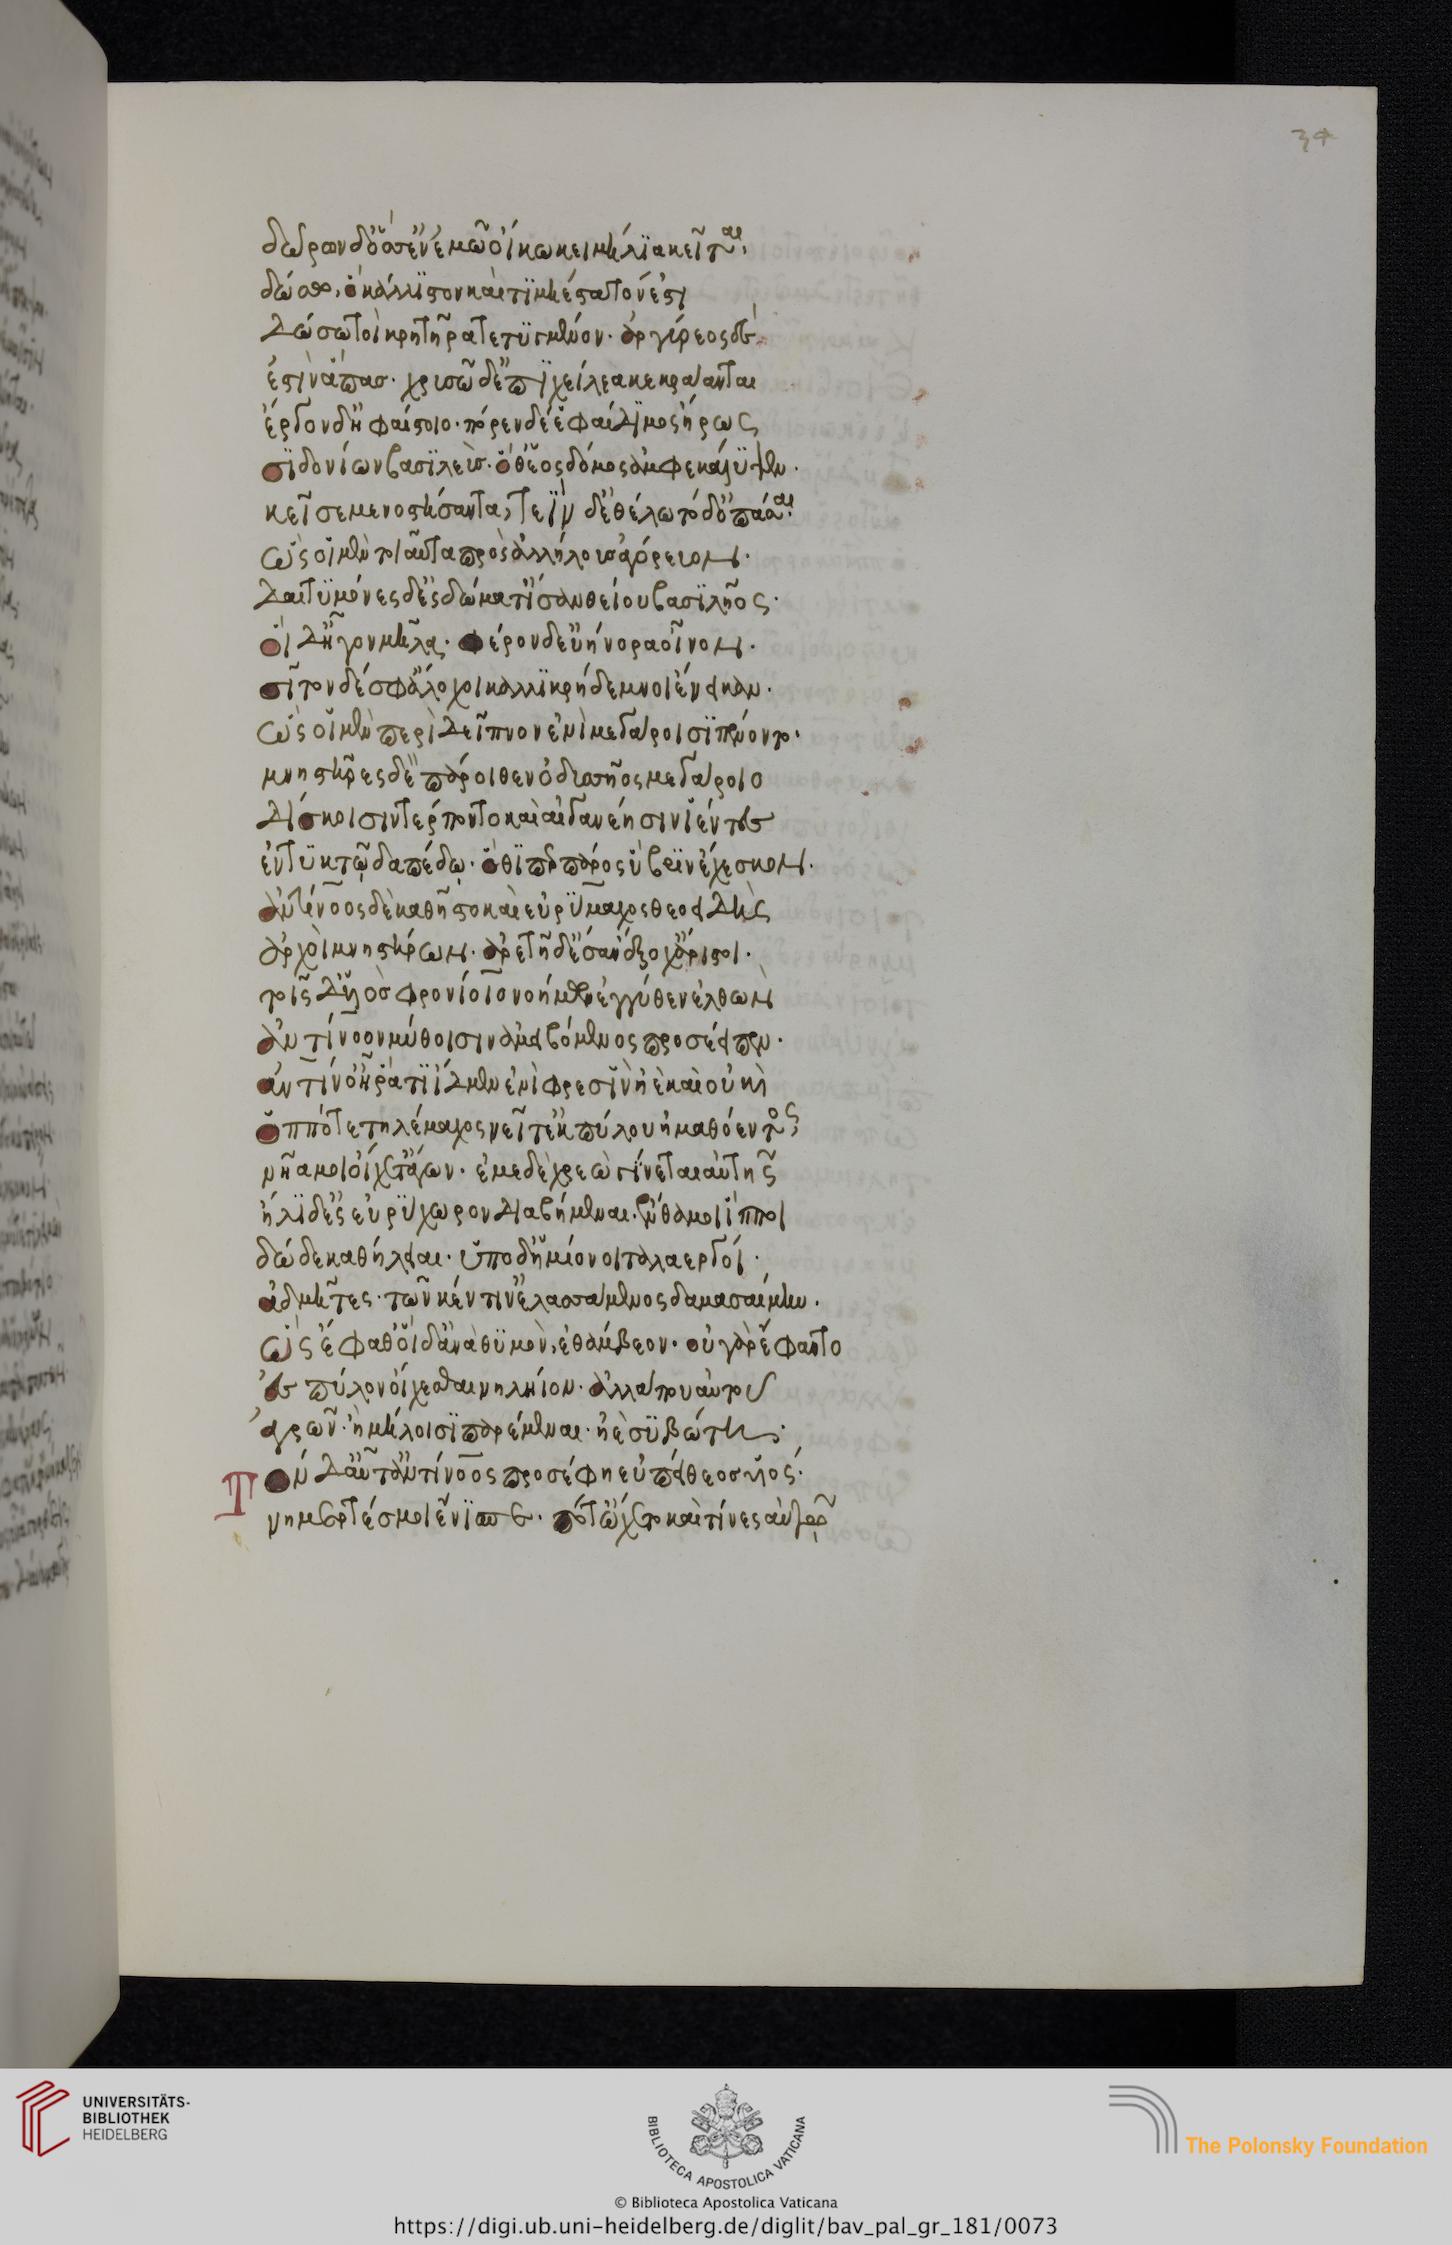 34
δώρων δ' ὅσσ' ἐν ἐμῷ οἴκω κειμήλϊα κεῖται,
δώσω, ὃ κάλλϊστον καὶ τϊμηέστατόν ἐστι
δώσω τοὶ κρητῆρα τετϋγμένον· ἀργύρεος δὲ
ἐστὶν ἅπας· χρυσῶ δ' ἐπϊ χείλεα κεκράανται
ἔργον δ' ἡφαίστοιο· πόρεν δέ ἑ φαίδϊμος ἥρως
σϊδονίων βασϊλεύς· ὅθ' ἑὸς δόμος ἀμφεκάλϋψεν·
κεῖσέ με νοστήσαντα, τεῒν δ' ἐθέλω τόδ' ὀπάσσαι·
ὣς οἱ μὲν τοιαῦτα πρὸς ἀλλήλους ἀγόρευον·
δαιτϋμόνες δ' ἐς δώματ' ἴσαν θείου βασϊλῆος·
οἱ δ' ἦγον μῆλα· φέρον δ' εὐήνορα οἶνον·
σῖτον δέ σφ' ἄλοχοι καλλϊκρήδεμνοι ἔνεικαν·
ὣς οἱ μὲν περὶ δεῖπνον ἐνὶ μεγάροισϊ πένοντο·
μνηστῆρες δὲ πάροιθεν ὀδυσσῆος μεγάροιο
δίσκοισιν τέρποντο καὶ αἰγανέησιν ἱέντες
ἐν τϋκτῷ δαπέδῳ· ὅθϊ περ πάρος ὕβρϊν ἔχεσκον·
ἀντίνοος δὲ καθῆστο καὶ εὐρύμαχος θεοειδὴς
ἀρχοὶ μνηστήρων· ἀρετῆ δ' ἔσαν ἔξοχ' ἄριστοι·
τοῖς δ' υἱὸς φρονίοιο νοήμων ἐγγύθεν ἐλθὼν
ἀντίνοον μύθοισιν ἀμειβόμενος προσέειπεν·
ἀντίνο' ἦ ῥά τϊ ἴδμεν ἐνὶ φρεσὶν ἠὲ καὶ οὐκὶ
ὁππότε τηλέμαχος νεῖτ' ἐκ πύλου ἠμαθόεντος,
νῆα μοι οἴχετ' ἄγων· ἐμὲ δὲ χρεὼ γίνεται αὐτῆς
ἤλϊδ' ἐς εὐρύχωρον διαβήμεναι· ἔνθα μοι ἵπποι
δώδεκα θήλειαι· ὑπὸ δ' ἡμίονοι ταλαεργοί·
ἀδμῆτες· τῶν κέν τιν' ἐλασσάμενος δαμασαίμην·
ὣς ἔφαθ' οἱ δ' ἀνὰ θϋμὸν, ἐθάμβεον· οὐ γὰρ ἔφαντο
ἐς πύλον οἴχεσθαι νηλήιον· ἀλλά που αὐτοῦ
ἀγρῶν· ἢ μήλοισϊ παρέμμεναι· ἠὲ συβώτη·
Τὸν δ' αὖτ' ἀντίνοος προσέφη εὐπείθεος υἱός·
νημερτές μοι ἔνϊσπε· πότ' ᾤχετο καὶ τίνες αὐτῷ
UNIVERSITÄTS-
BIBLIOTHEK
HEIDELBERG
BIBLIOTECA APOSTOLICA VATICANA
The Polonsky Foundation
© Biblioteca Apostolica Vaticana
https://digi.ub.uni-heidelberg.de/diglit/bav_pal_gr_181/0073